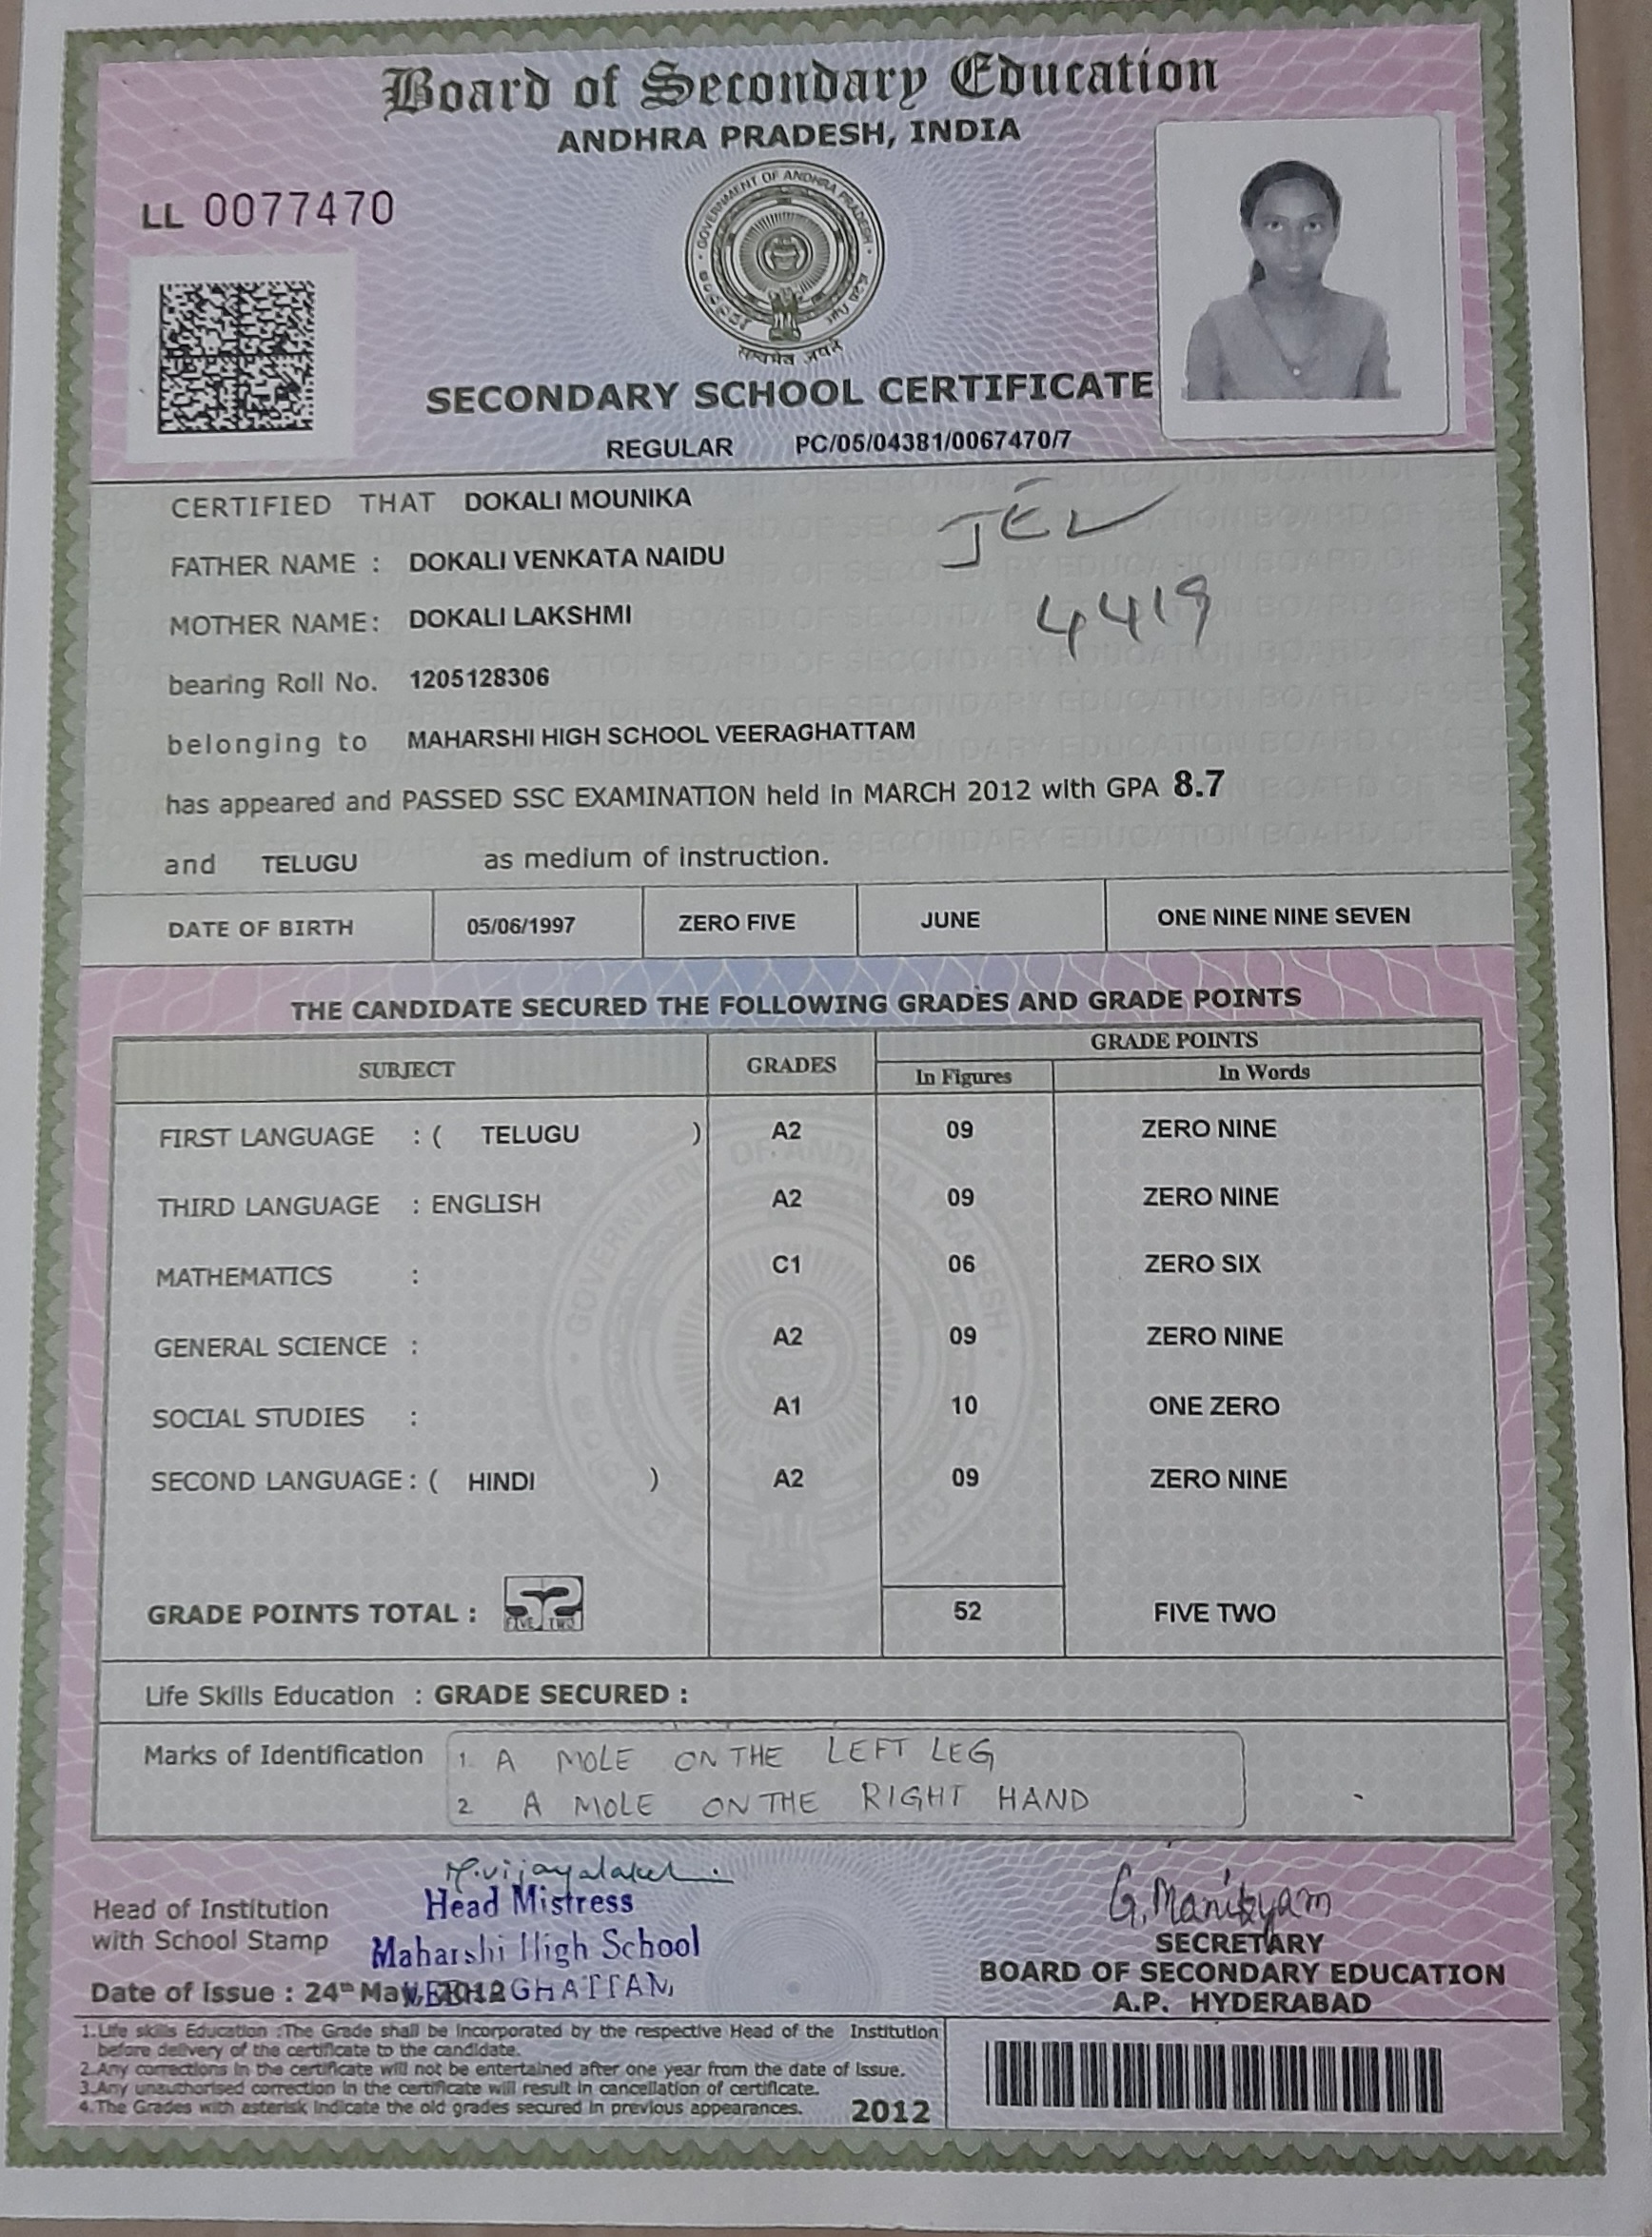 Board of Secondary Education
ANDHRA PRADESH, INDIA
LL 0077470
GOVERNMENT OF ANDHRA PRADESH
सत्यमेव जयते
SECONDARY SCHOOL CERTIFICATE
REGULAR PC/05/04381/0067470/7
CERTIFIED THAT DOKALI MOUNIKA
FATHER NAME : DOKALI VENKATA NAIDU
MOTHER NAME: DOKALI LAKSHMI
4419
bearing Roll No. 1205128306
belonging to MAHARSHI HIGH SCHOOL VEERAGHATTAM
has appeared and PASSED SSC EXAMINATION held in MARCH 2012 with GPA 8.7
and TELUGU as medium of instruction.
DATE OF BIRTH 05/06/1997 ZERO FIVE JUNE ONE NINE NINE SEVEN
THE CANDIDATE SECURED THE FOLLOWING GRADES AND GRADE POINTS
SUBJECT GRADES GRADE POINTS
In Figures In Words
FIRST LANGUAGE : ( TELUGU ) A2 09 ZERO NINE
THIRD LANGUAGE : ENGLISH A2 09 ZERO NINE
MATHEMATICS : C1 06 ZERO SIX
GENERAL SCIENCE : A2 09 ZERO NINE
SOCIAL STUDIES : A1 10 ONE ZERO
SECOND LANGUAGE : ( HINDI ) A2 09 ZERO NINE
GRADE POINTS TOTAL : 52 FIVE TWO 52 FIVE TWO
Life Skills Education : GRADE SECURED :
Marks of Identification 1. A MOLE ON THE LEFT LEG
2 A MOLE ON THE RIGHT HAND
G. Manikyam
Head of Institution Head Mistress
with School Stamp Maharshi High School
Date of Issue : 24th May, 2012 VEERAGHATTAM
SECRETARY
BOARD OF SECONDARY EDUCATION
A.P. HYDERABAD
1.Life skills Education :The Grade shall be incorporated by the respective Head of the Institution
before delivery of the certificate to the candidate.
2.Any corrections in the certificate will not be entertained after one year from the date of issue.
3.Any unauthorised correction in the certificate will result in cancellation of certificate.
4.The Grades with asterisk indicate the old grades secured in previous appearances. 2012